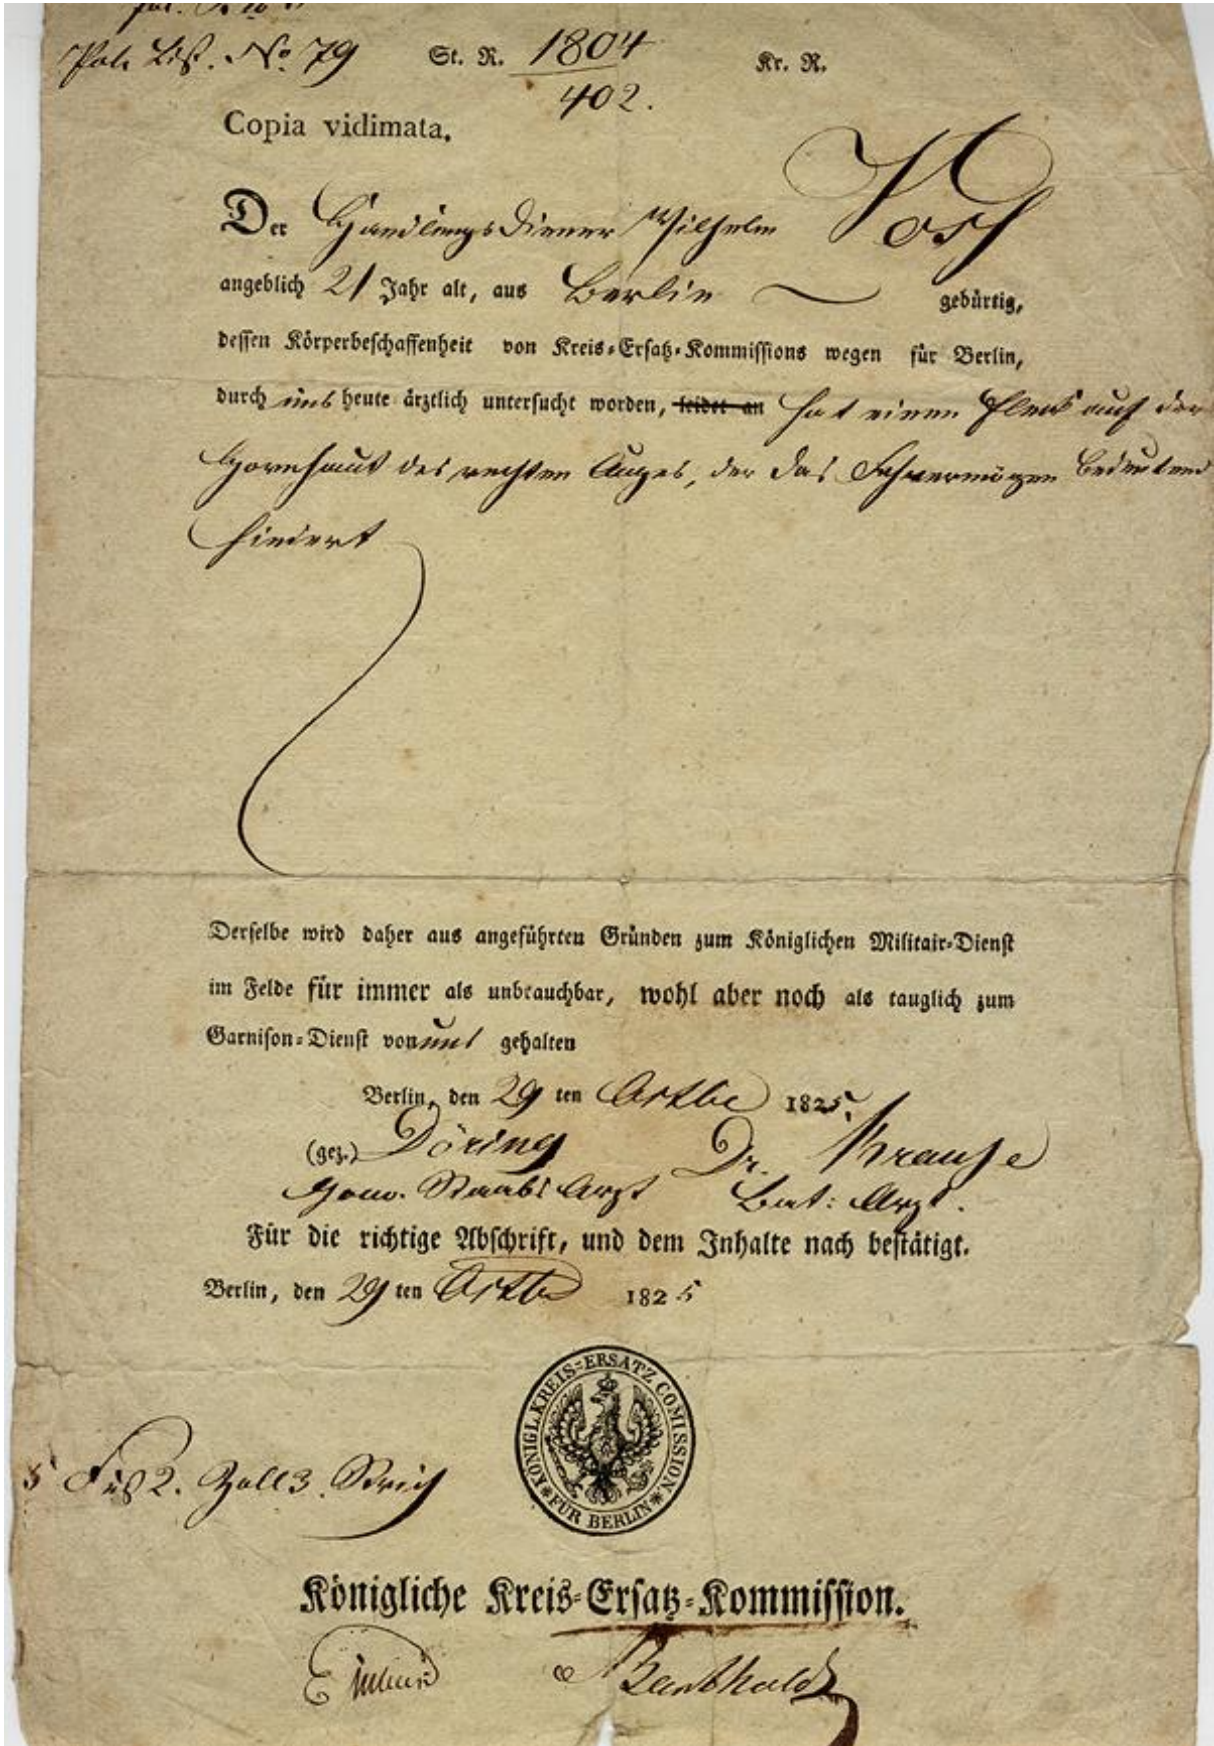 Pol. List. No. 79 St. R. 1804 Kr. R.
402.
Copia vidimata.
Der Handlungs Diener Wilhelm Voss
angeblich 21 Jahr alt, aus Berlin gebürtig,
dessen Körperbeschaffenheit von Kreis-Ersatz-Kommissions wegen für Berlin,
durch uns heute ärztlich untersucht worden, leidet an hat einen Fleck auf der
Hornhaut des rechten Auges, der das Sehvermögen bedeutend
hindert
Derselbe wird daher aus angeführten Gründen zum Königlichen Militair-Dienst
im Felde für immer als unbrauchbar, wohl aber noch als tauglich zum
Garnison-Dienst von uns gehalten
Berlin, den 29 ten Octbr 1825.
(gez.) Döring Dr. Krause
Staabs Arzt Bat: Arzt.
Für die richtige Abschrift, und dem Inhalte nach bestätigt.
Berlin, den 29 ten Octbr 1825
KÖNIGL. KREIS-ERSATZ COMISSION
FÜR BERLIN
5 Fuß 2. Zoll 3. Strich
Königliche Kreis-Ersatz-Kommission.